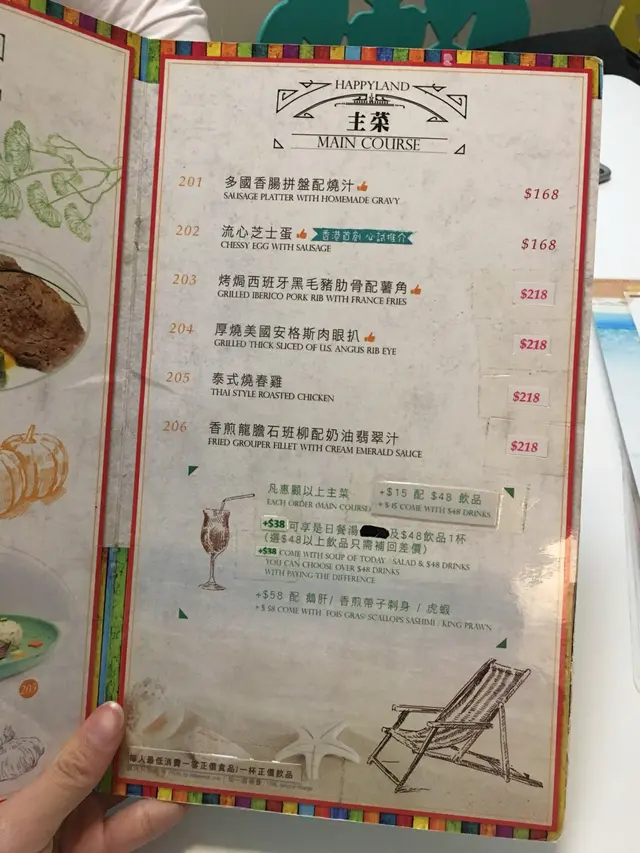 HAPPYLAND
主菜
MAIN COURSE
201 多國香腸拼盤配燒汁 $168
SAUSAGE PLATTER WITH HOMEMADE GRAVY
202 流心芝士蛋 香港首創 心試推介 $168
CHESSY EGG WITH SAUSAGE
203 烤焗西班牙黑毛豬肋骨配薯角 $218
GRILLED IBERICO PORK RIB WITH FRANCE FRIES
204 厚燒美國安格斯肉眼扒 $218
GRILLED THICK SLICED OF U.S. ANGUS RIB EYE
205 泰式燒春雞 $218
THAI STYLE ROASTED CHICKEN
206 香煎龍膽石班柳配奶油翡翠汁 $218
FRIED GROUPER FILLET WITH CREAM EMERALD SAUCE
凡惠顧以上主菜 +$15 配 $48 飲品
EACH ORDER (MAIN COURSE) +$15 COME WITH $48 DRINKS
+$38 可享是日餐湯 及$48飲品1杯
(選$48以上飲品只需補回差價)
+$38 COME WITH SOUP OF TODAY / SALAD & $48 DRINKS
YOU CAN CHOOSE OVER $48 DRINKS
WITH PAYING THE DIFFERENCE
+$58 配 鵝肝/ 香煎帶子刺身 / 虎蝦
+$58 COME WITH FOIS GRAS/ SCALLOPS SASHIMI / KING PRAWN
每人最低消費一客正價食品/一杯正價飲品
203